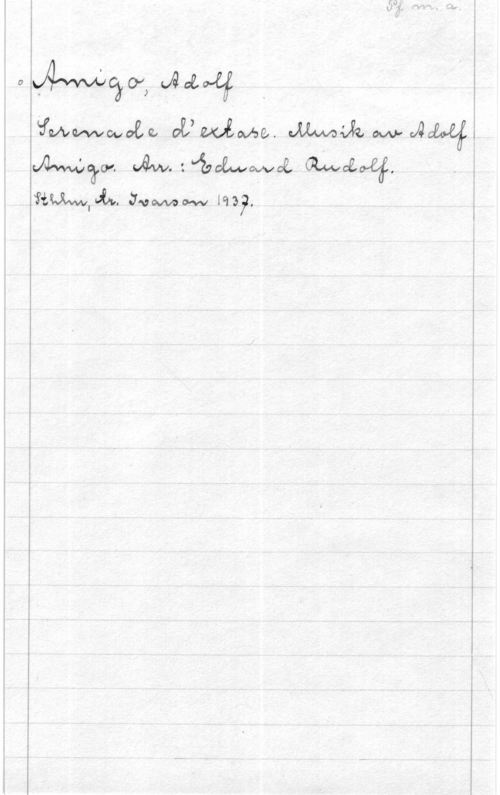 Pf m. a.
Amigo, Adolf
Serenade d'extase. Musik av Adolf
Amigo. Arr.: Eduard Rudolf.
Sthlm, Ivarson 1937.